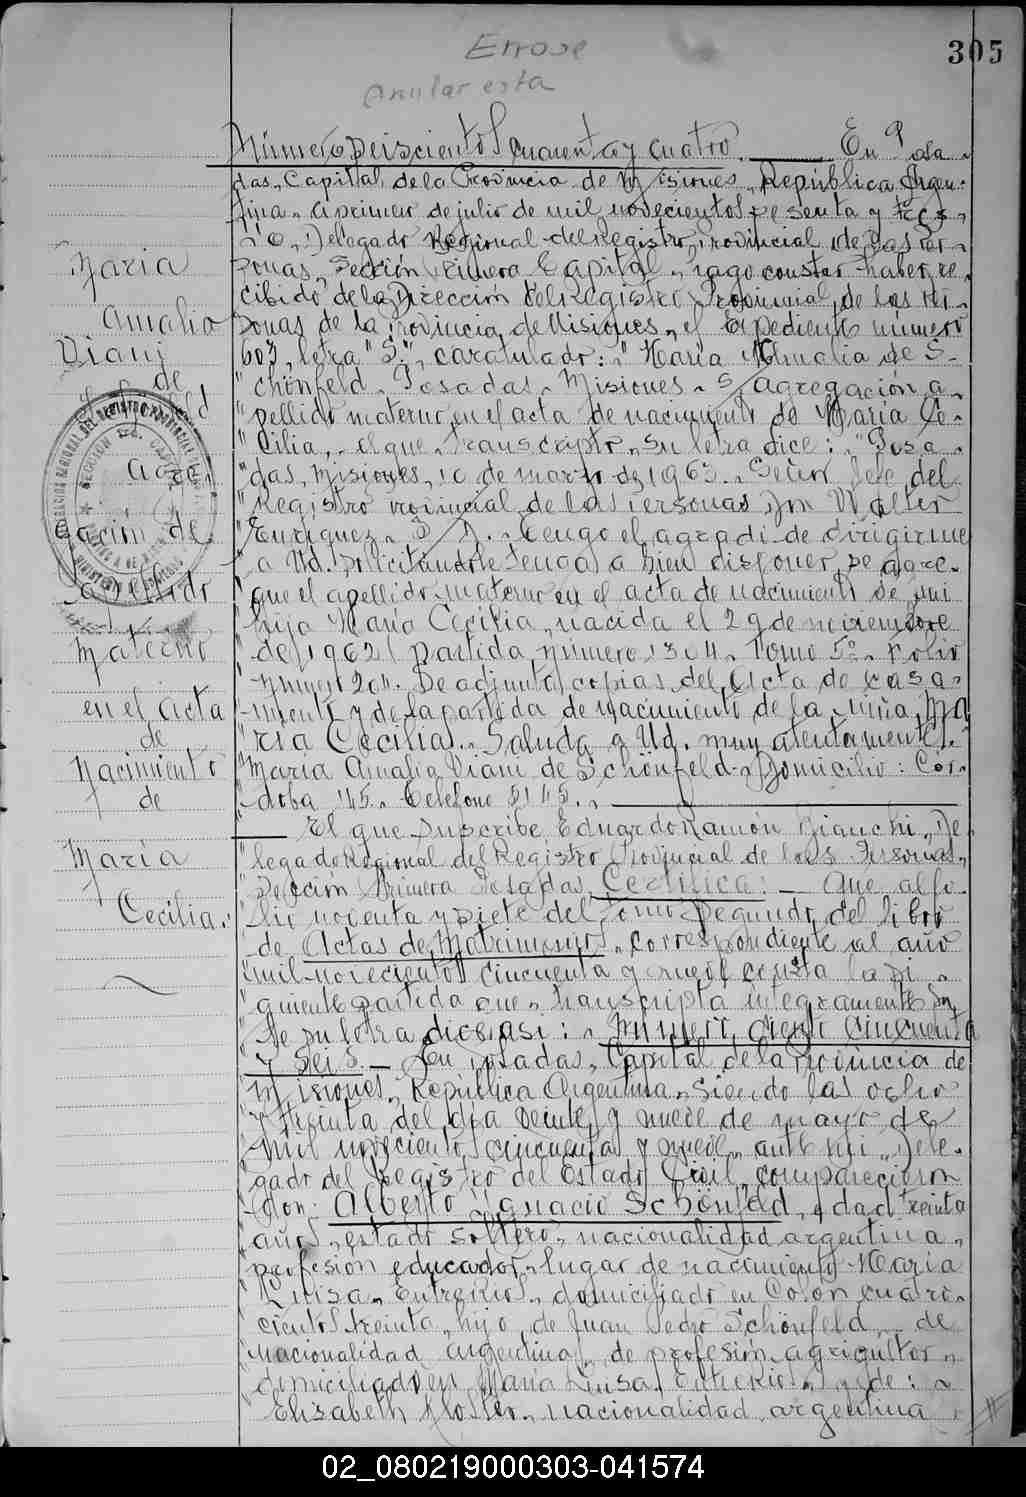 305
Errose
Anular esta
Número Seiscientos cuarenta y cuatro. En Posa-
das, Capital de la Provincia de Misiones, República Argen-
tina, a primero de julio de mil novecientos sesenta y tres,
Yo, Delegado Regional del Registro Provincial de las Per-
sonas, Sección Primera Capital, hago constar haber re-
cibido de la Dirección del Registro Provincial de las Per-
sonas de la Provincia de Misiones, el Expediente número
607, letra "S.", caratulado: "María Amalia de S-
"chönfeld. Posadas. Misiones. S/ agregación a-
"pellido materno en el acta de nacimiento de María Ce-
"cilia, el que transcripto, su letra dice: "Posa-
"das, Misiones, 10 de marzo de 1963. Señor Jefe del
"Registro Provincial de las Personas Don Walter
"Enriquez. S/D. Tengo el agrado de dirigirme
"a Ud. solicitándole tenga a bien disponer se agre-
"gue el apellido materno en el acta de nacimiento de mi
"hija María Cecilia, nacida el 29 de noviembre
"de 1962 partida número 1304. Tomo 5º. Folio
"número 204. Se adjunta copias del Acta de casa-
"miento y de la partida de nacimiento de la niña, Ma
"ría Cecilia. Saluda a Ud. muy atentamente.
"María Amalia Viani de Schönfeld. Domicilio: Cor-
"doba 145. Telefono 5145.
El que suscribe Eduardo Ramón Bianchi, De
"legado Regional del Registro Provincial de las Personas,
"Sección Primera Posadas, Certifica: - Que al fo-
"lio noventa y siete del tomo segundo del libro
"de Actas de Matrimonios, correspondiente al año
"mil novecientos cincuenta y nueve consta la si-
"guiente partida que transcripta integramente
"de su letra dice así: Número Ciento Cincuenta
"y Seis. - En Posadas, Capital de la Provincia de
"Misiones, República Argentina, siendo las ocho
"y treinta del día veinte y nueve de mayo de
"mil novecientos cincuenta y nueve, ante mi, Dele-
"gado del Registro del Estado Civil, comparecieron
"don: Alberto Ignacio Schönfeld, edad treinta
"años, estado soltero, nacionalidad argentina,
"profesión educador, lugar de nacimiento María
"Luisa, Entre Ríos, domiciliado en Colon cuatro-
"cientos treinta, hijo de Juan Pedro Schönfeld, de
"nacionalidad argentina, de profesión agricultor,
"domiciliado en María Luisa, Entre Ríos, y de:
"Elisabeth Kloster, nacionalidad argentina
María
Amalia
Viani
de
Schönfeld
Agre-
gación de
apellido
Materno
en el Acta
de
Nacimiento
de
María
Cecilia.
02_080219000303-041574